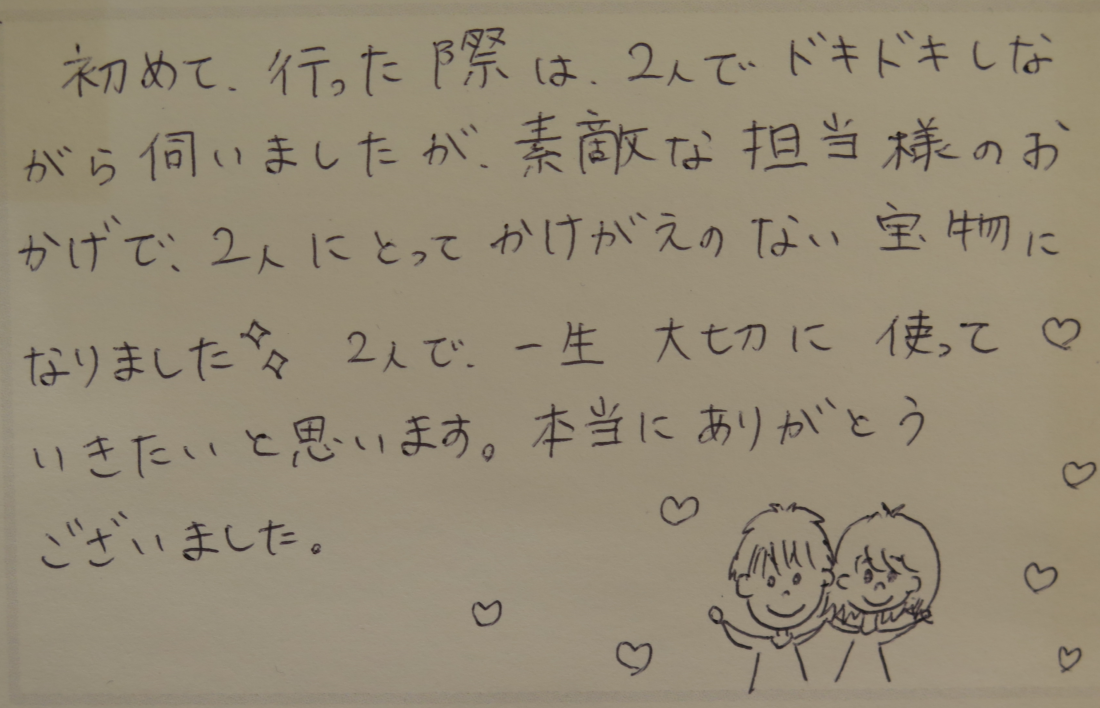 初めて、行った際は、2人でドキドキしな
がら伺いましたが、素敵な担当様のお
かげで、2人にとってかけがえのない宝物に
なりました 2人で、一生大切に使って
いきたいと思います。本当にありがとう
ございました。